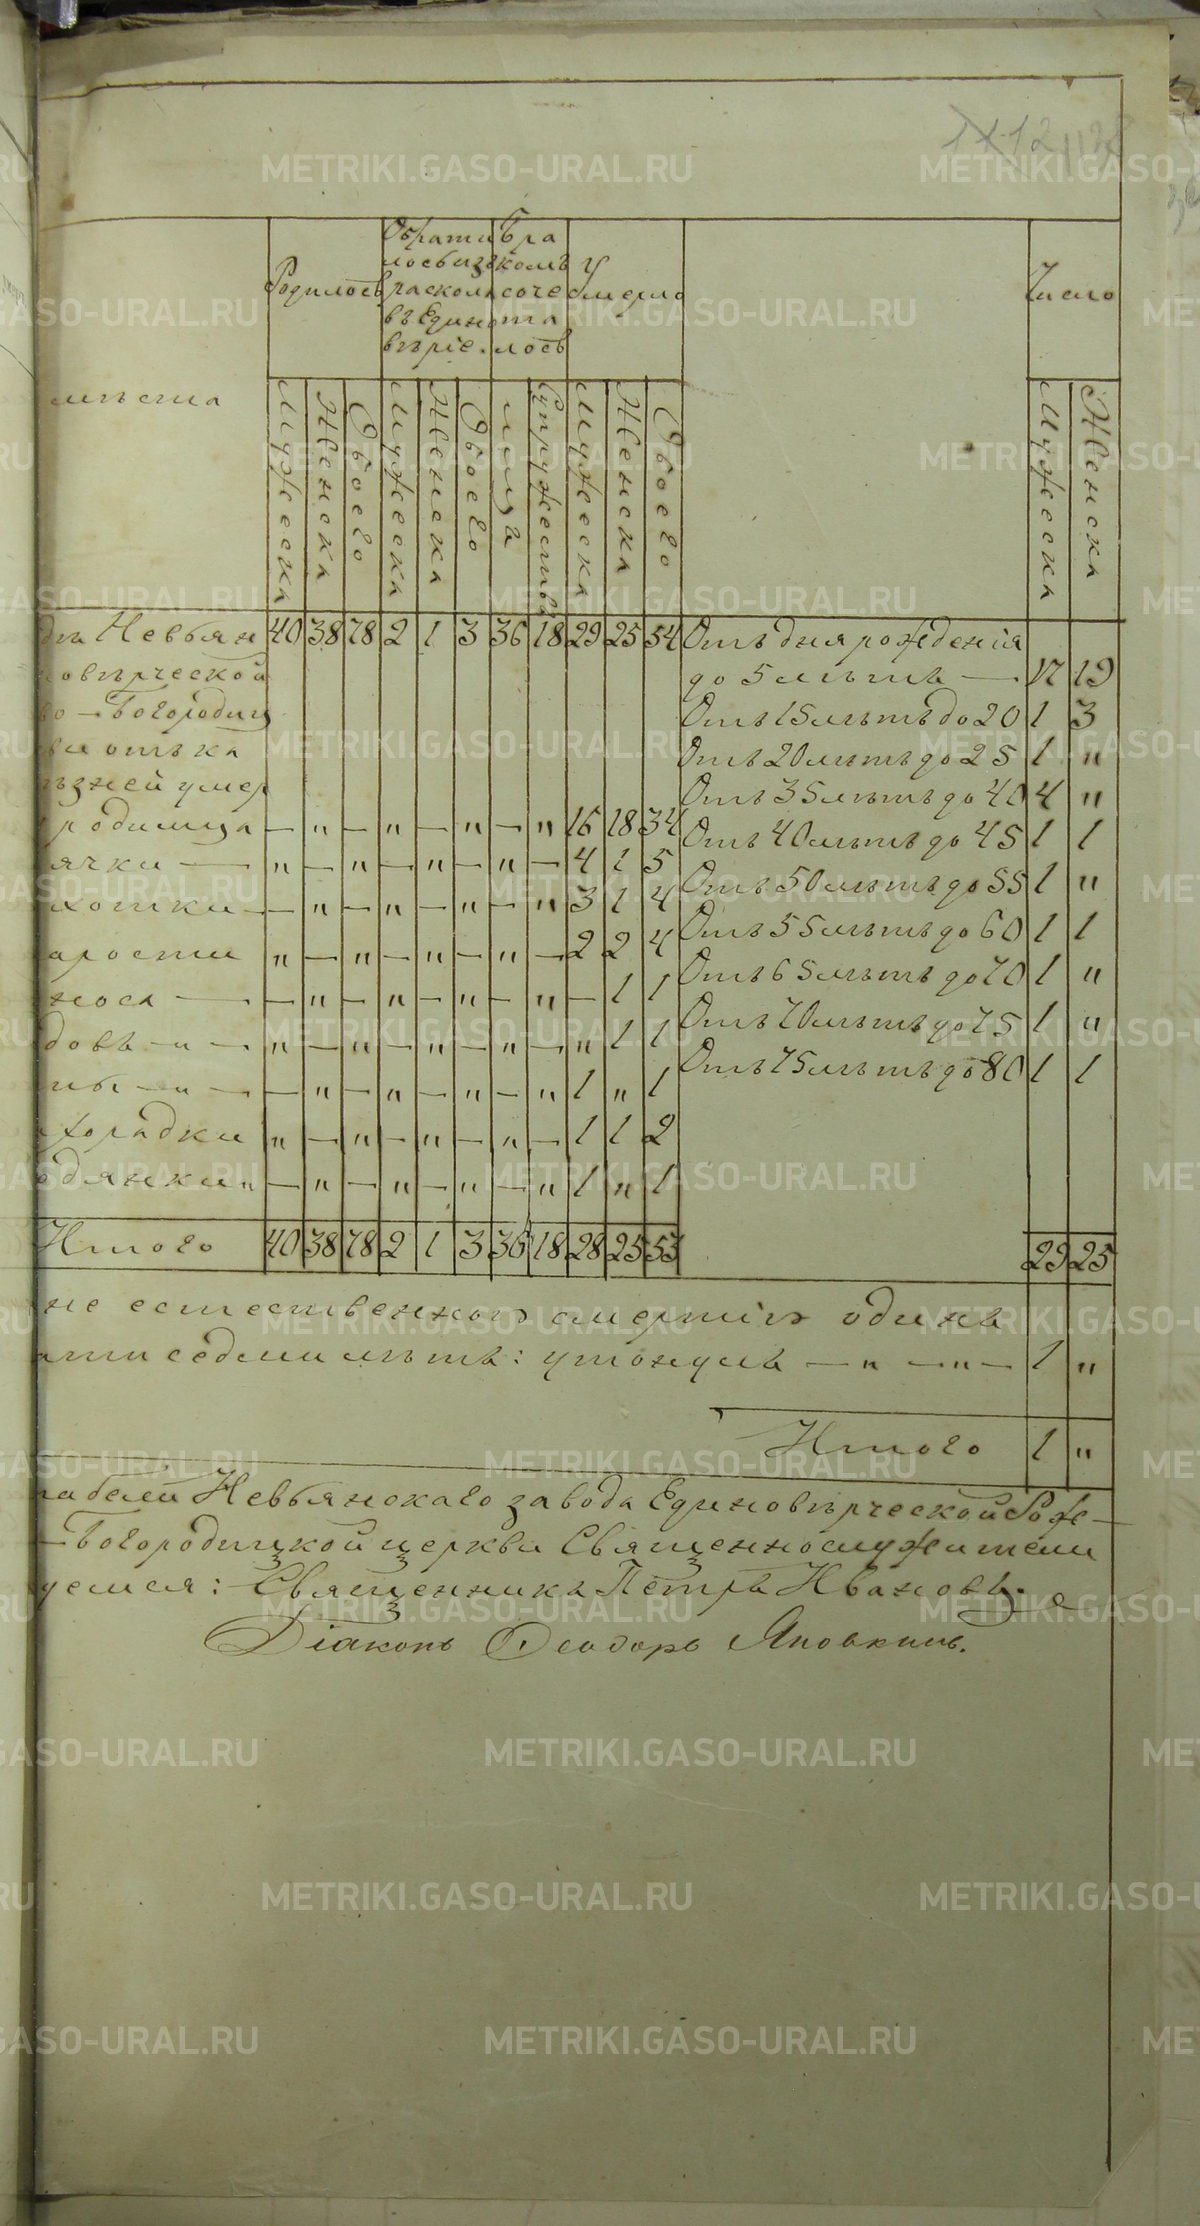 Родилось
Обрати
лось изъ
раскола
въ Едино
вѣріе.
Бра
комъ
соче
та
лось
Умерло
Число
мѣста
Мужеска
Женска
Обоего
Мужеска
Женска
Обоего
лица
Супружествъ
Мужеска
Женска
Обоего
Мужеска
Женска
Невьян 40 38 78 2 1 3 36 18 29 25 54 Отъ дня рожденія
овѣрческой до 5 лѣтъ — 17 19
во-Богородиц Отъ 15 лѣтъ до 20 1 3
ви отъ ка Отъ 20 лѣтъ до 25 1 "
ѣзней умер Отъ 35 лѣтъ до 40 4 "
родимца — " — " — " — " 16 18 34 Отъ 40 лѣтъ до 45 1 1
ячки — " — " — " — " — 4 1 5 Отъ 50 лѣтъ до 55 1 "
хотки — — " — " — " — " 3 1 4 Отъ 55 лѣтъ до 60 1 1
арости " — " — " — " — 2 2 4 Отъ 65 лѣтъ до 70 1 "
носа — — " — " — " — " — 1 1 Отъ 70 лѣтъ до 75 1 "
довъ — " — " — " — " — " — " 1 1 Отъ 75 лѣтъ до 80 1 1
ны — " — — " — " — " — " 1 " 1
хорадки " — " — " — " — 1 1 2
одянки " — " — " — " — " 1 " 1
Итого 40 38 78 2 1 3 36 18 28 25 53 29 25
не естественною смертію одинъ
яти седми лѣтъ: утонулъ — " — " — 1 "
Итого 1 "
табели Невьянскаго завода Единовѣрческой Рож-
-Богородицкой церкви Священнослужители
уемся: Священникъ Петръ Ивановъ.
Діаконъ Ѳеодоръ Яповкинъ.
METRIKI.GASO-URAL.RU